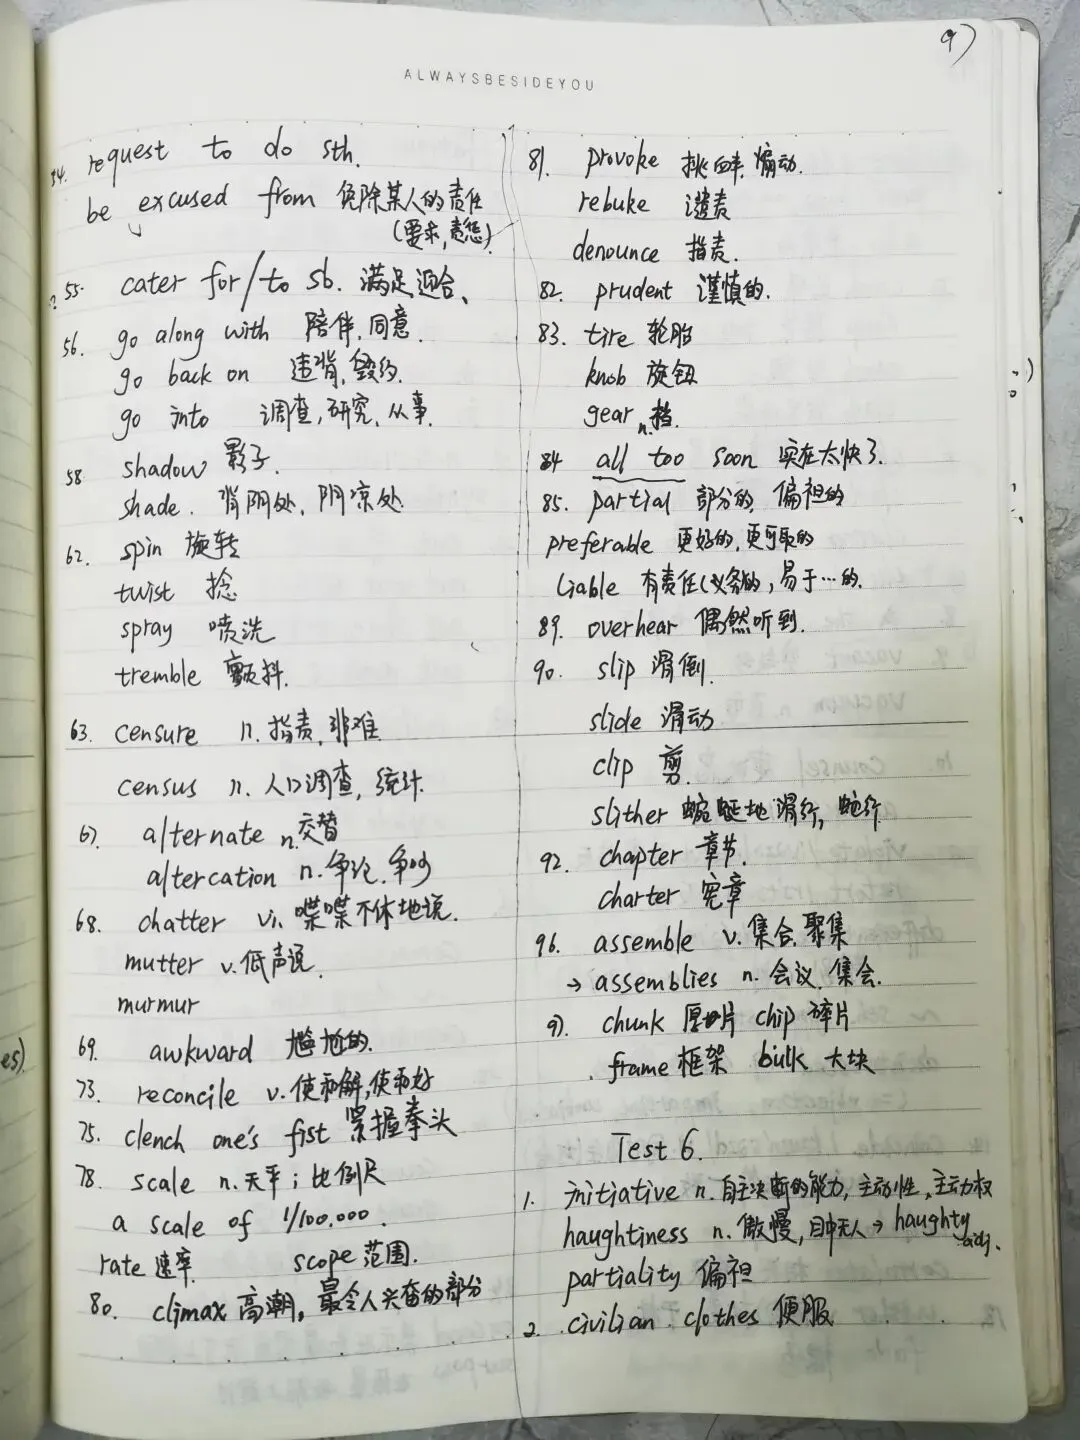 9)
ALWAYSBESIDEYOU
54. request to do sth.
be excused from 免除某人的责任
(要求,责惩)
55. cater for/to sb. 满足迎合、
56. go along with 陪伴.同意.
go back on 违背,毁约.
go into 调查,研究、从事.
58 shadow 影子.
shade. 背阴处、阴凉处
62. spin 旋转
twist 捻
spray 喷洗
tremble 颤抖.
63. censure n. 指责,非难
census n. 人口调查,统计.
67. alternate n.交替
altercation n.争论.争吵
68. chatter vi. 喋喋不休地说.
mutter v.低声说.
murmur
69. awkward 尴尬的.
73. reconcile v.使和解,使和好
75. clench one's fist 紧握拳头
78. scale n.天平；比例尺
a scale of 1/100,000.
rate 速率 scope 范围.
80. climax 高潮, 最令人兴奋的部分
81. provoke 挑衅,煽动.
rebuke 谴责
denounce 指责.
82. prudent 谨慎的.
83. tire 轮胎
knob 旋钮
gear n.挡.
84 all too soon 实在太快了.
85. partial 部分的, 偏袒的
preferable 更好的,更可取的
liable 有责任(义务的,易于…的.
89. overhear 偶然听到.
90. slip 滑倒.
slide 滑动
clip 剪.
slither 蜿蜒地滑行,蛇行
92. chapter 章节.
charter 宪章
96. assemble v.集合.聚集
→ assemblies n. 会议.集会.
97. chunk 厚片 chip 碎片
frame 框架 bulk 大块
Test 6.
1. initiative n. 自主决断的能力,主动性,主动权
haughtiness n. 傲慢,目中无人 → haughty adj.
partiality 偏袒
2. civilian clothes 便服